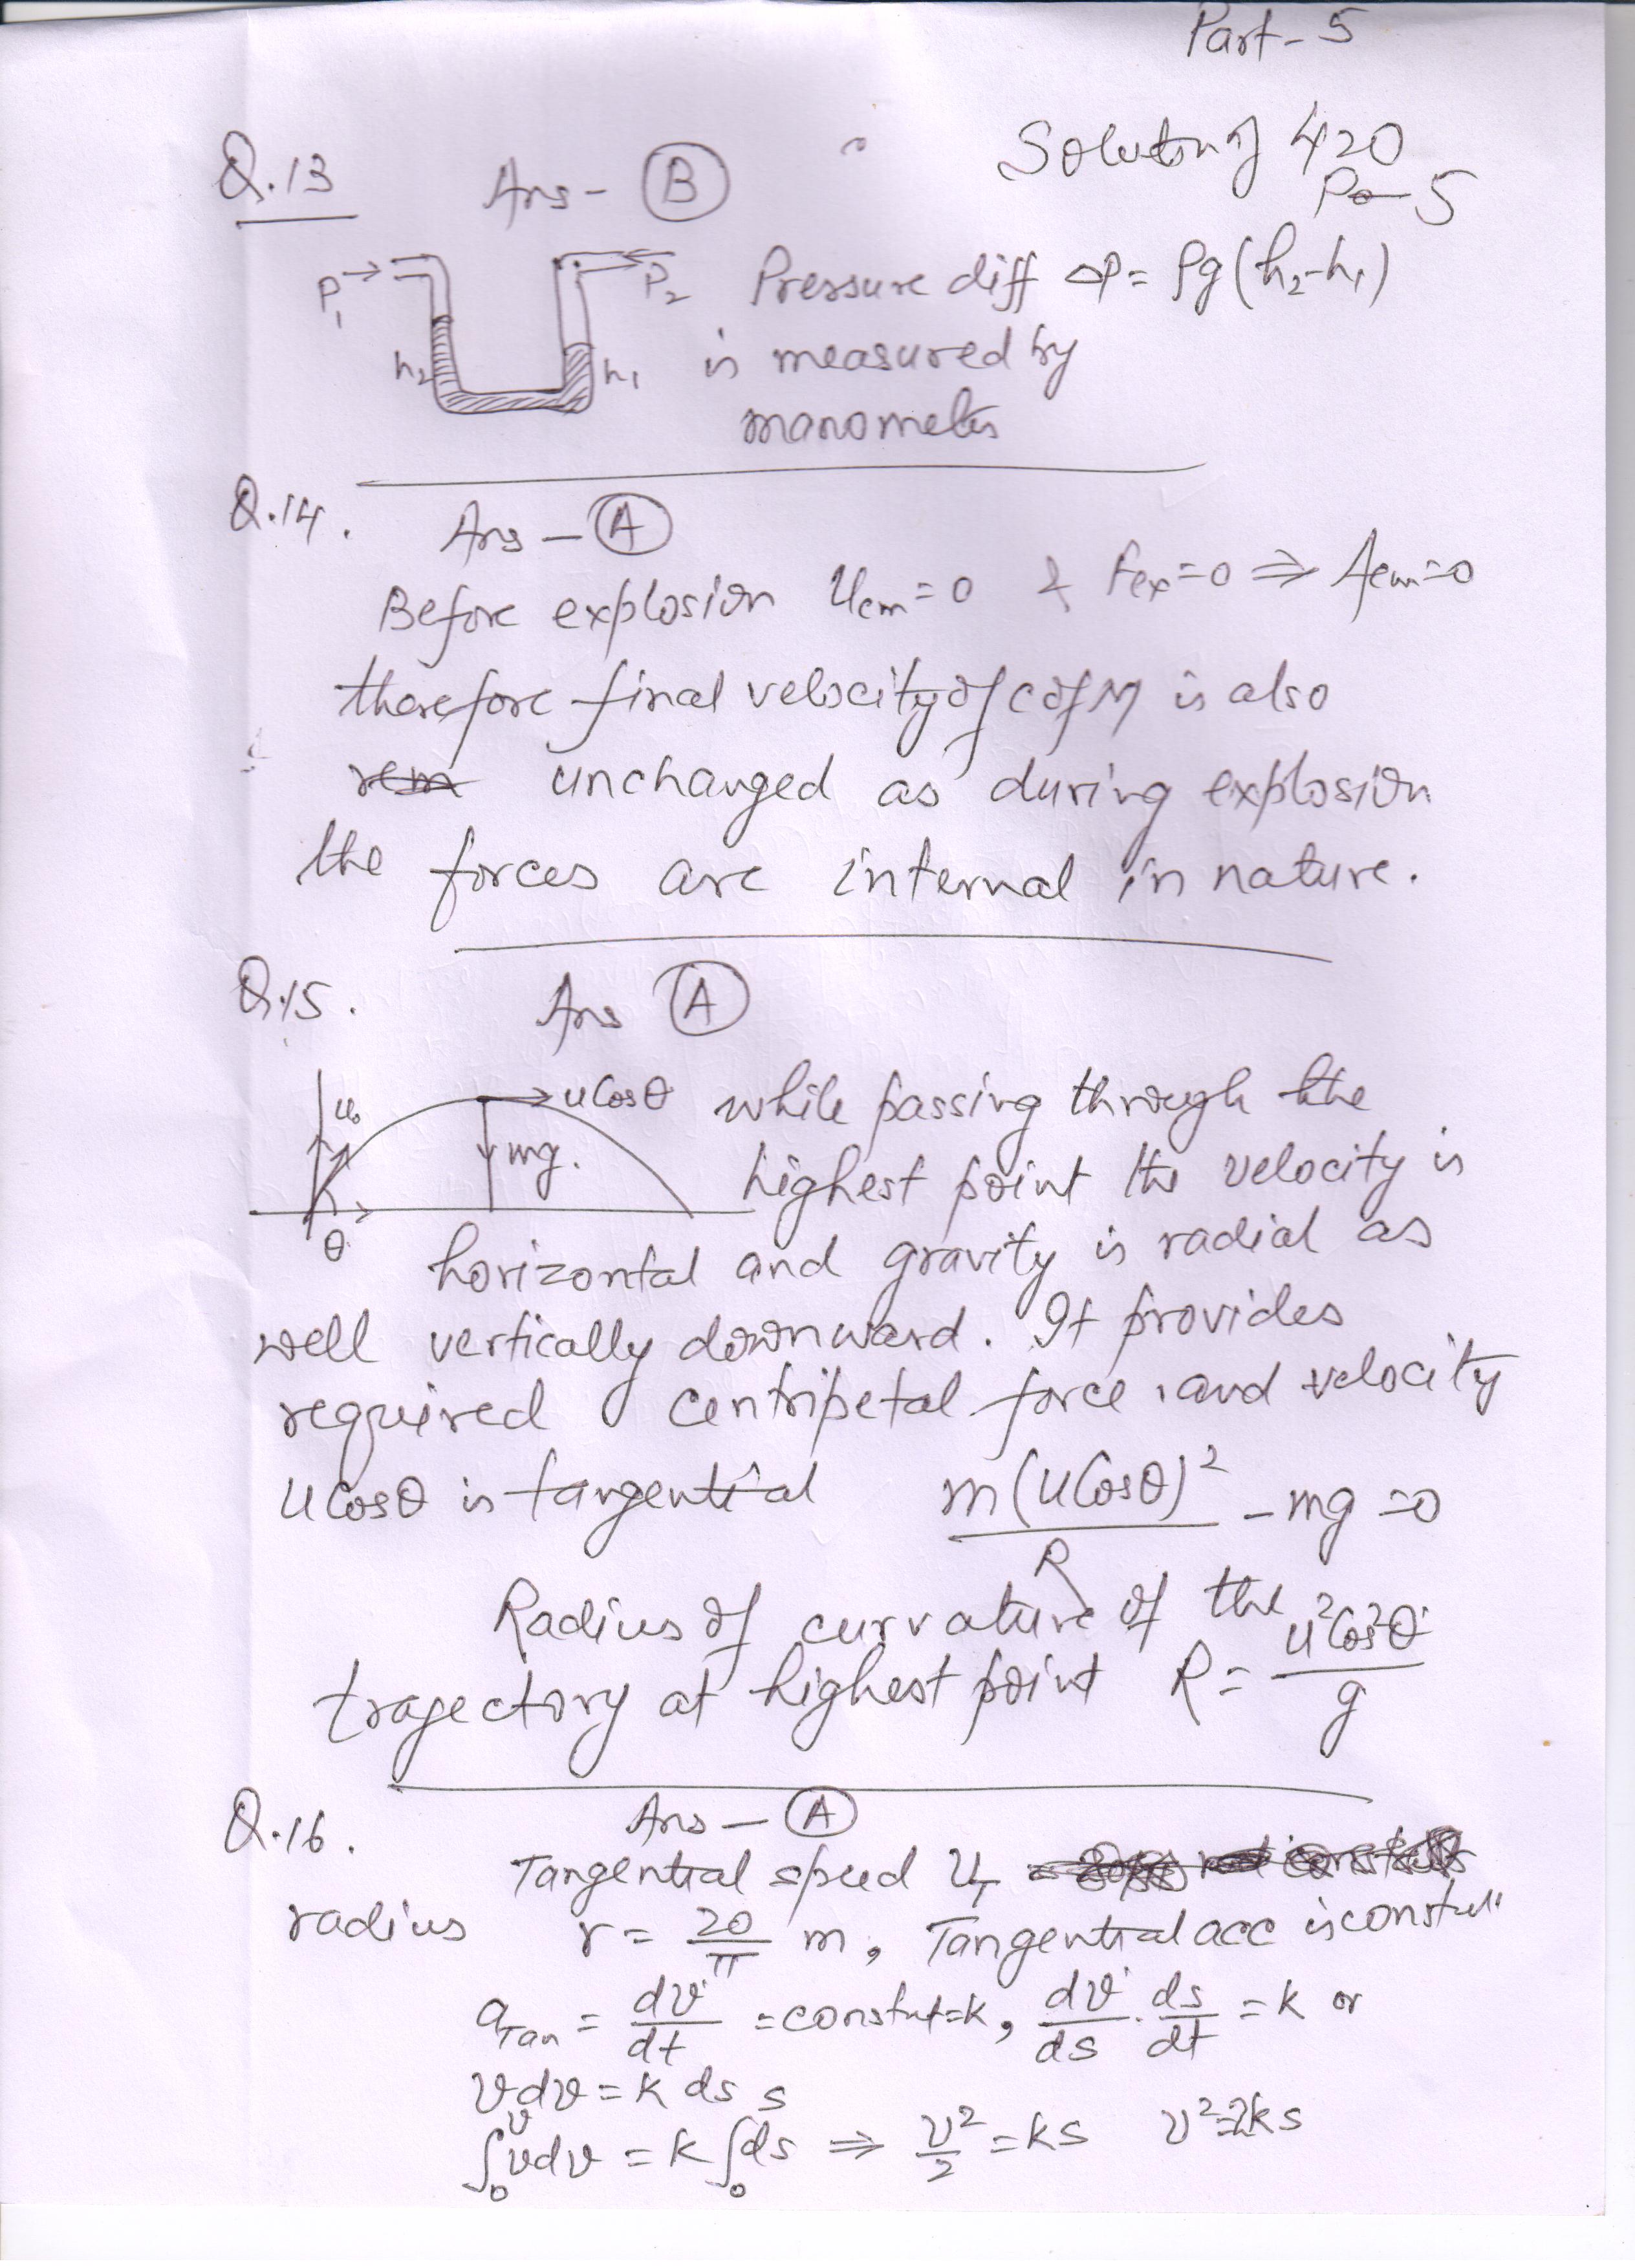 Part-5
Solution of 420
P-5
Q.13 Ans- B
P₁ P₂ Pressure diff ΔP = ρg(h₂-h₁)
h₂ h₁ is measured by
manometer
Q.14. Ans - A
Before explosion Ucm=0 & Fex=0 ⇒ Acm=0
therefore final velocity of C of M is also
rem unchanged as during explosion
the forces are internal in nature.
Q.15. Ans A
u ucosθ while passing through the
mg. highest point the velocity is
θ horizontal and gravity is radial as
well vertically downward. It provides
required centripetal force, and velocity
ucosθ is tangential m(ucosθ)²/R - mg = 0
Radius of curvature of the
trajectory at highest point R = u²cos²θ/g
Q.16. Ans - A
Tangential speed U_T
radius r = 20/π m, Tangential acc is constant
a_Tan = dv/dt = constnt=k, dv/ds . ds/dt = k or
vdv = k ds
∫₀ᵛ vdv = k ∫₀ˢ ds ⇒ v²/2 = ks v²=2ks